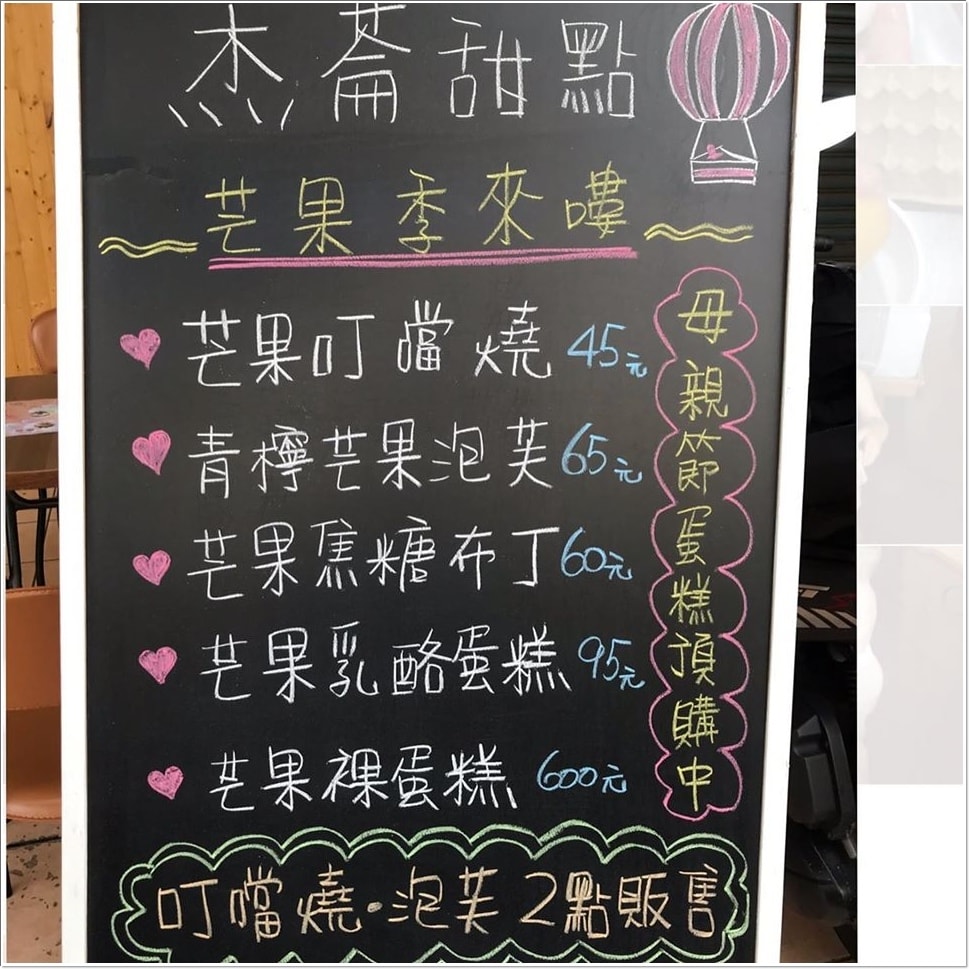 杰崙甜點
芒果季來嘍
芒果叮噹燒 45元
青檸芒果泡芙 65元
芒果焦糖布丁 60元
芒果乳酪蛋糕 95元
芒果裸蛋糕 600元
母親節蛋糕頂購中
叮噹燒·泡芙2點販售